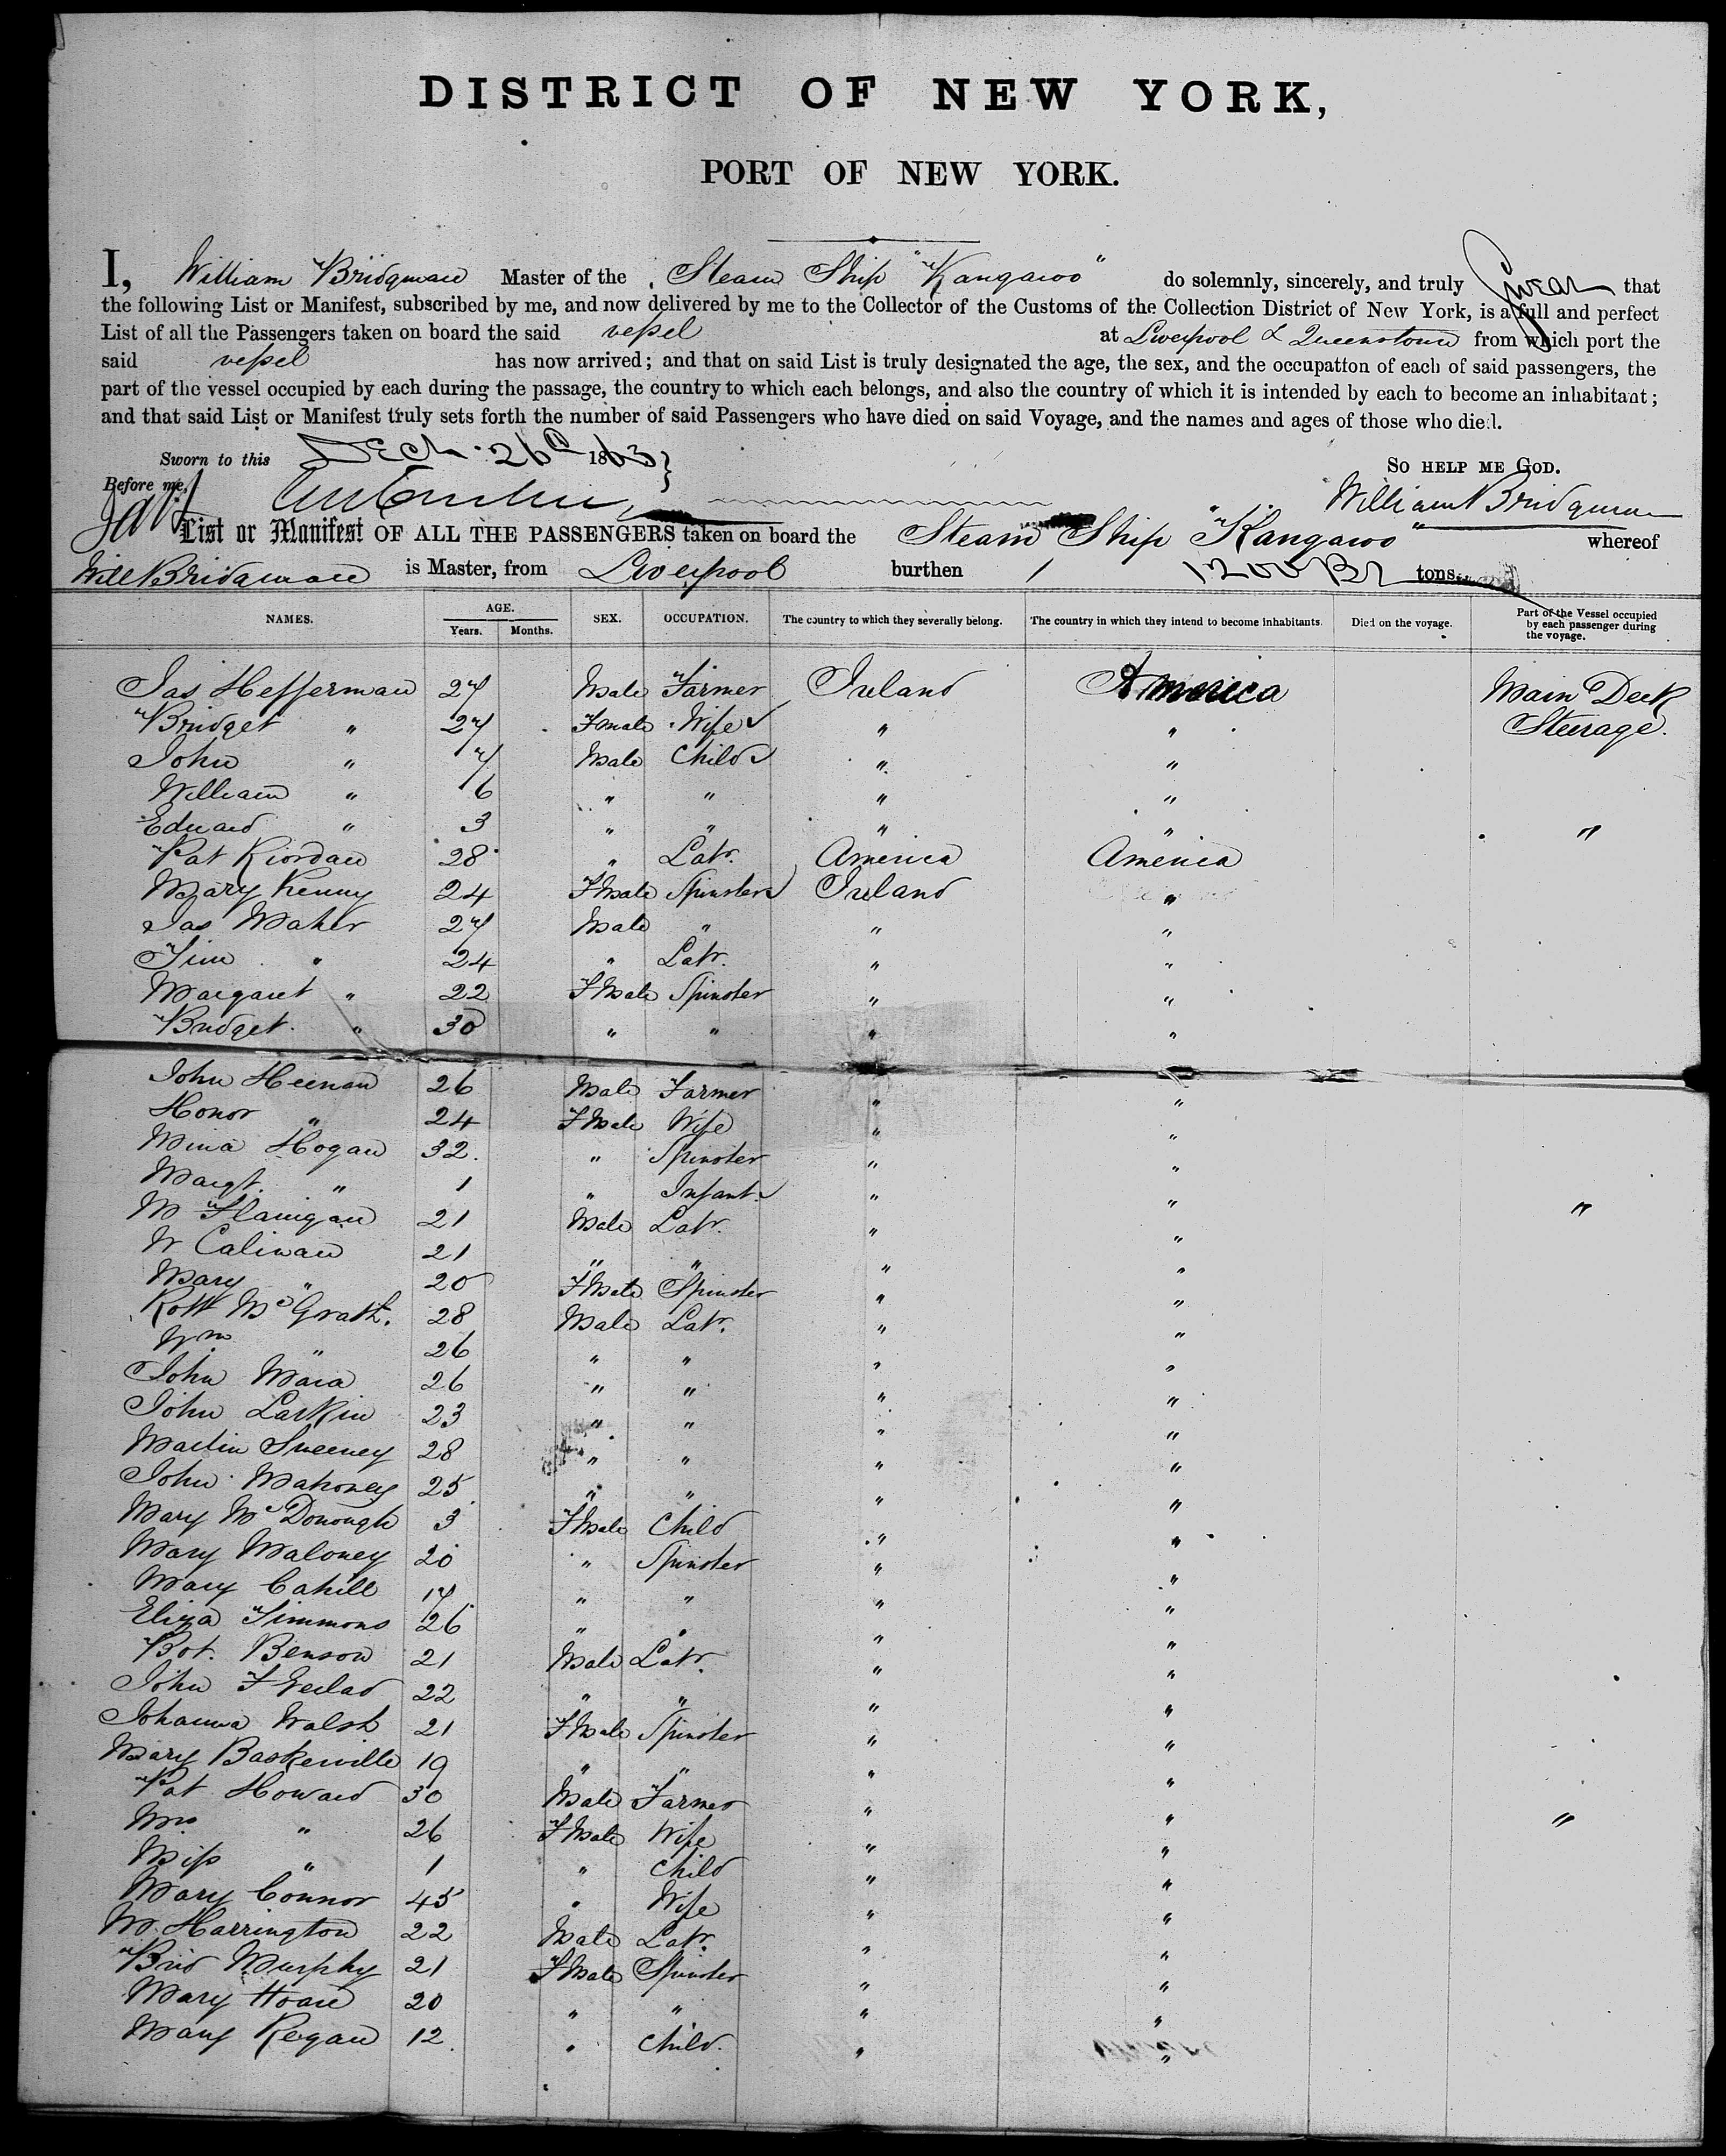 DISTRICT OF NEW YORK,
PORT OF NEW YORK.
I, William Bridgman Master of the Steam Ship "Kangaroo" do solemnly, sincerely, and truly Swear that
the following List or Manifest, subscribed by me, and now delivered by me to the Collector of the Customs of the Collection District of New York, is a full and perfect
List of all the Passengers taken on board the said vessel at Liverpool & Queenstown from which port the
said vessel has now arrived; and that on said List is truly designated the age, the sex, and the occupation of each of said passengers, the
part of the vessel occupied by each during the passage, the country to which each belongs, and also the country of which it is intended by each to become an inhabitant;
and that said List or Manifest truly sets forth the number of said Passengers who have died on said Voyage, and the names and ages of those who died.
Sworn to this Dech. 26th 1863 } SO HELP ME GOD.
Before me, William Bridgman
List or Manifest OF ALL THE PASSENGERS taken on board the Steam Ship "Kangaroo" whereof
Will Bridgman is Master, from Liverpool burthen 1200 tons.
NAMES. AGE. Years. Months. SEX. OCCUPATION. The country to which they severally belong. The country in which they intend to become inhabitants. Died on the voyage. Part of the Vessel occupied by each passenger during the voyage.
Jas Hefferman 27 Male Farmer Ireland America Main Deck
Bridget " 27 Fmale Wife " " Steerage.
John " 7 Male Child " "
William " 6 " " " "
Edward " 3 " " " " "
Pat Riordan 28 " Labr. America America
Mary Kenny 24 FMale Spinster Ireland "
Jas Maher 27 Male " " "
Tim " 24 " Labr. " "
Margaret " 22 FMale Spinster " "
Bridget " 30 " " " "
John Heenan 26 Male Farmer " "
Honor " 24 FMale Wife " "
Mina Hogan 32 " Spinster " "
Margt. " 1 " Infant " " "
M Flanigan 21 Male Labr. " "
W Calinan 21 " " " "
Mary " 20 FMale Spinster " "
Robt McGrath. 28 Male Labr. " "
Wm " 26 " " " "
John Mara 26 " " " "
John Larkin 23 " " " "
Martin Sweeney 28 " " " "
John Mahoney 25 " " " "
Mary McDonough 3 FMale Child " "
Mary Maloney 20 " Spinster " "
Mary Cahill 17 " " " "
Eliza Timmons 26 " " " "
Bot. Benson 21 Male Labr. " "
John 22 " " " "
Johanna Walsh 21 FMale Spinster " "
Mary Baskerville 19 " " " "
Pat Howard 30 Male Farmer " "
Mrs " 26 FMale Wife " " "
Miss " 1 " Child " "
Mary Connor 45 " Wife " "
M. Harrington 22 Male Labr. " "
Brid Murphy 21 FMale Spinster " "
Mary Hoare 20 " " " "
Mary Regan 12 " Child. " "